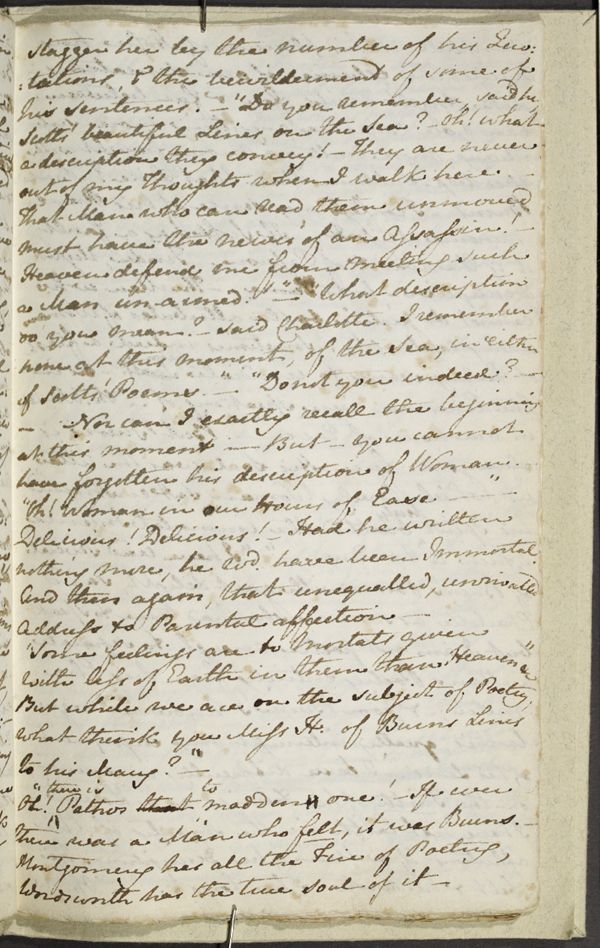 stagger her by the number of his Quo:
:tations, & the bewilderment of some of
his sentences. – "Do you remember, said he
Scotts' beautiful Lines on the Sea? – Oh! what
a description they convey! – They are never
out of my Thoughts when I walk here. –
That Man who can read them unmoved
must have the nerves of an Assassin! –
Heaven defend me from meeting such
a Man un-armed." – "What description
do you mean? – said Charlotte. I remember
none at this moment, of the Sea, in either
of Scotts' Poems. –" "Do not you indeed? –
– Nor can I exactly recall the beginning
at this moment –– But – you cannot
have forgotten his description of Woman. –
"Oh! Woman in our Hours of Ease –––"
Delicious! Delicious! – Had he written
nothing more, he wd have been Immortal.
And then again, that unequalled, unrivalled
Address to Parental affection –
"Some feelings are to Mortals given
With less of Earth in them than Heaven" &c
But while we are on the subject of Poetry,
what think you Miss H. of Burns Lines
to his Mary? –"
Oh! there is Pathos that to madden one! – If ever
there was a Man who felt, it was Burns. –
Montgomery has all the Fire of Poetry,
Wordsworth has the true soul of it –